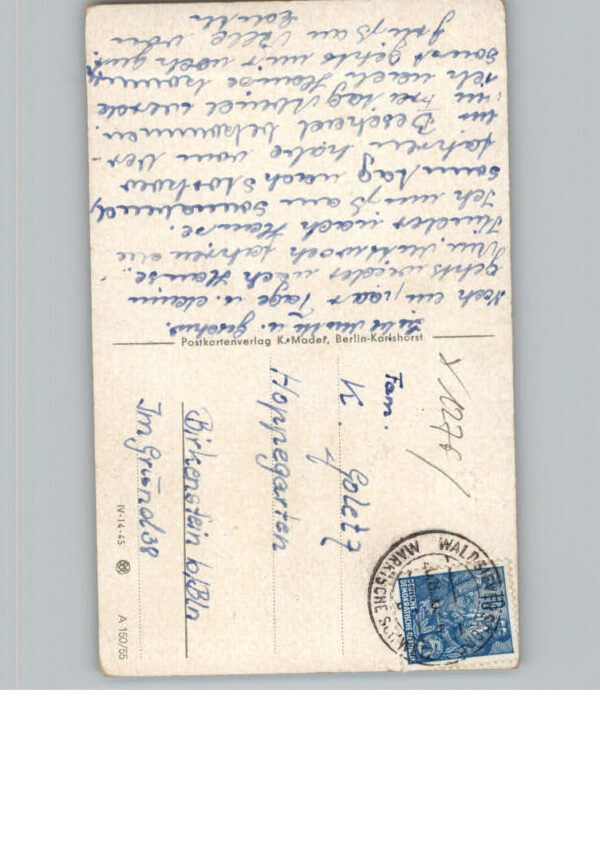 Liebe Mutti u. Geschw.
Noch ein paar Tage u. dann
gehts wieder nach Hause.
Am Mittwoch fahren die
Kinder nach Hause.
Ich muß am Sonnabend
Sonntag nach Storkow
fahren habe vom Ver-
Bescheid bekommen.
Freitag Abend werde
ich nach Hause kommen
sonst gehts mir noch gut.
Gruß an Alle von
Postkartenverlag K. Mader, Berlin-Karlshorst
Fam.
K. Goletz
Hoppegarten
Birkenstein b/Bln
Im Grund 38
IV-14-45
A 150/55
WALDSIEVERSDORF
MÄRKISCHE SCHWEIZ
DEUTSCHE
DEMOKRATISCHE REPUBLIK